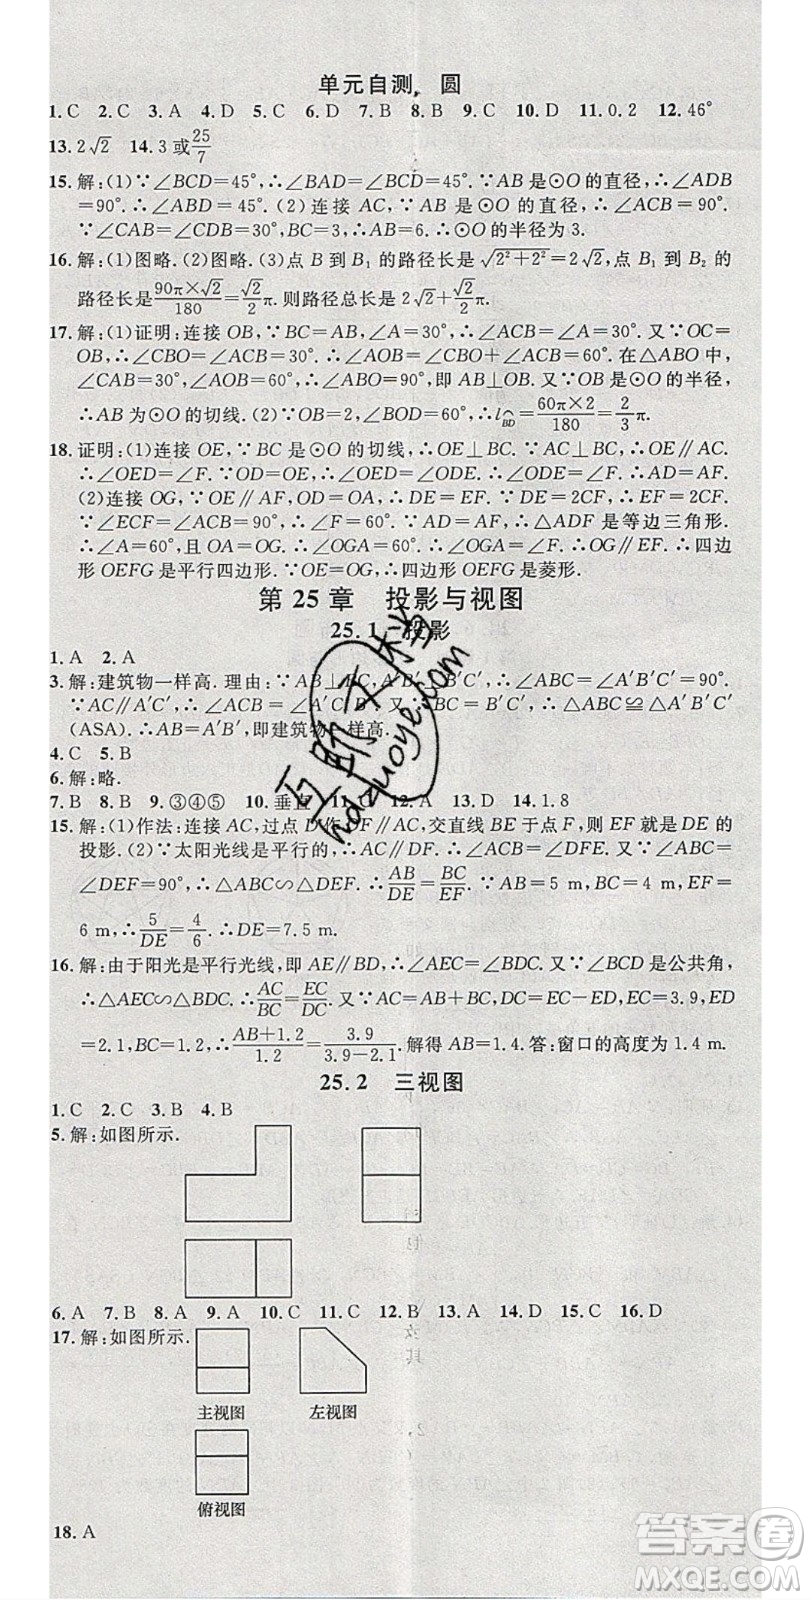 单元自测　圆
1.C 2.C 3.A 4.D 5.C 6.D 7.B 8.B 9.C 10.D 11.0.2 12.46°
13.2√2 14.3或25/7
15.解:(1)∵∠BCD=45°,∴∠BAD=∠BCD=45°.∵AB是⊙O的直径,∴∠ADB
=90°.∴∠ABD=45°.(2)连接AC,∵AB是⊙O的直径,∴∠ACB=90°.
∵∠CAB=∠CDB=30°,BC=3,∴AB=6.∴⊙O的半径为3.
16.解:(1)图略.(2)图略.(3)点B到B₁的路径长是√(2²+2²)=2√2,点B₁到B₂的
路径长是90π×√2/180=√2/2π.则路径总长是2√2+√2/2π.
17.解:(1)证明:连接OB,∵BC=AB,∠A=30°,∴∠ACB=∠A=30°.又∵OC=
OB,∴∠CBO=∠ACB=30°.∴∠AOB=∠CBO+∠ACB=60°.在△ABO中,
∠CAB=30°,∠AOB=60°,∴∠ABO=90°,即AB⊥OB.又∵OB为⊙O的半径,
∴AB为⊙O的切线.(2)∵OB=2,∠BOD=60°,∴l⌒BD=60π×2/180=2/3π.
18.证明:(1)连接OE,∵BC是⊙O的切线,∴OE⊥BC.∵AC⊥BC,∴OE∥AC.
∴∠OED=∠F.∵OE=OD,∴∠OED=∠ODE.∴∠ODE=∠F.∴AD=AF.
(2)连接OG,∵OE∥AF,OD=OA,∴DE=EF.∵DE=2CF,∴EF=2CF.
∵∠ECF=∠ACB=90°,∴∠F=60°.∵AD=AF,∴△ADF是等边三角形.
∴∠A=60°,且OA=OG.∴∠OGA=60°.∴∠OGA=∠F.∴OG∥EF.∴四边
形OEFG是平行四边形.∵OE=OG,∴四边形OEFG是菱形.
第25章　投影与视图
25.1　投影
1.A 2.A
3.解:建筑物一样高.理由:∵AB⊥BC,A′B′⊥B′C′,∴∠ABC=∠A′B′C′=90°.
∵AC∥A′C′,∴∠ACB=∠A′C′B′.又∵BC=B′C′,∴△ABC≌△A′B′C′
(ASA).∴AB=A′B′,即建筑物一样高.
4.C 5.B
6.解:略.
7.B 8.B 9.③④⑤ 10.垂直 11.C 12.A 13.D 14.1.8
15.解:(1)作法:连接AC,过点D作DF∥AC,交直线BE于点F,则EF就是DE的
投影.(2)∵太阳光线是平行的,∴AC∥DF.∴∠ACB=∠DFE.又∵∠ABC
=∠DEF=90°,∴△ABC∽△DEF.∴AB/DE=BC/EF.∵AB=5 m,BC=4 m,EF=
6 m,∴5/DE=4/6.∴DE=7.5 m.
16.解:由于阳光是平行光线,即AE∥BD,∴∠AEC=∠BDC.又∵∠C是公共角,
∴△AEC∽△BDC.∴AC/BC=EC/DC.又∵AC=AB+BC,DC=EC-ED,EC=3.9,ED
=2.1,BC=1.2,∴(AB+1.2)/1.2=3.9/(3.9-2.1).解得AB=1.4.答:窗口的高度为1.4 m.
25.2　三视图
1.C 2.C 3.B 4.B
5.解:如图所示.
6.A 7.B 8.A 9.A 10.C 11.C 12.B 13.A 14.D 15.C 16.D
17.解:如图所示.
主视图　左视图
俯视图
18.A
互助文档
hdzuoye.com
答案圈
MXQE.COM